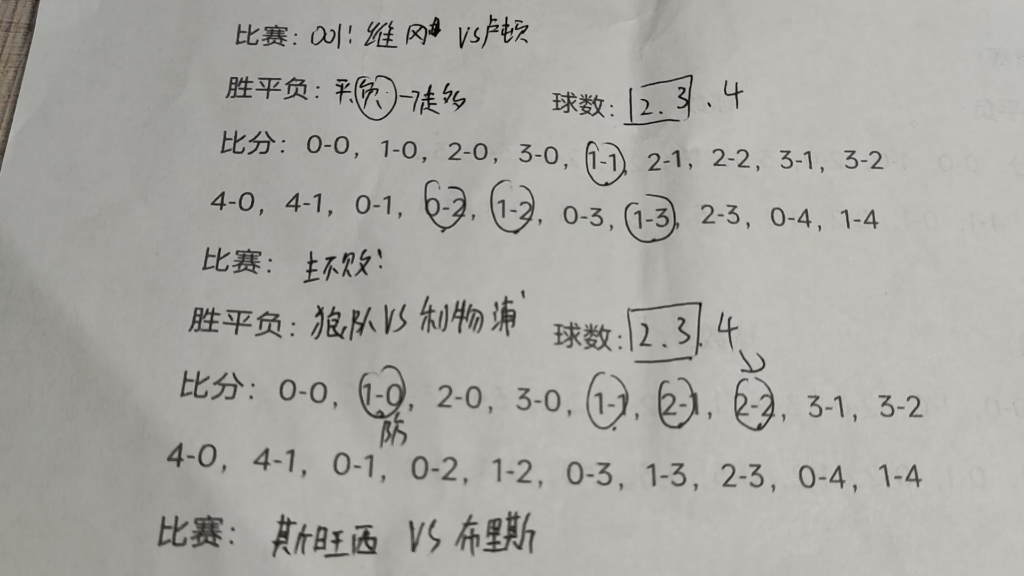 比赛: 001! 维冈 VS卢顿
胜平负: 平负一 球数: 2.3.4
比分: 0-0, 1-0, 2-0, 3-0, 1-1, 2-1, 2-2, 3-1, 3-2
4-0, 4-1, 0-1, 0-2, 1-2, 0-3, 1-3, 2-3, 0-4, 1-4
比赛: 主不败!
胜平负: 狼队VS利物浦 球数: 2.3.4
比分: 0-0, 1-0, 2-0, 3-0, 1-1, 2-1, 2-2, 3-1, 3-2
防
4-0, 4-1, 0-1, 0-2, 1-2, 0-3, 1-3, 2-3, 0-4, 1-4
比赛: 斯旺西 VS 布里斯